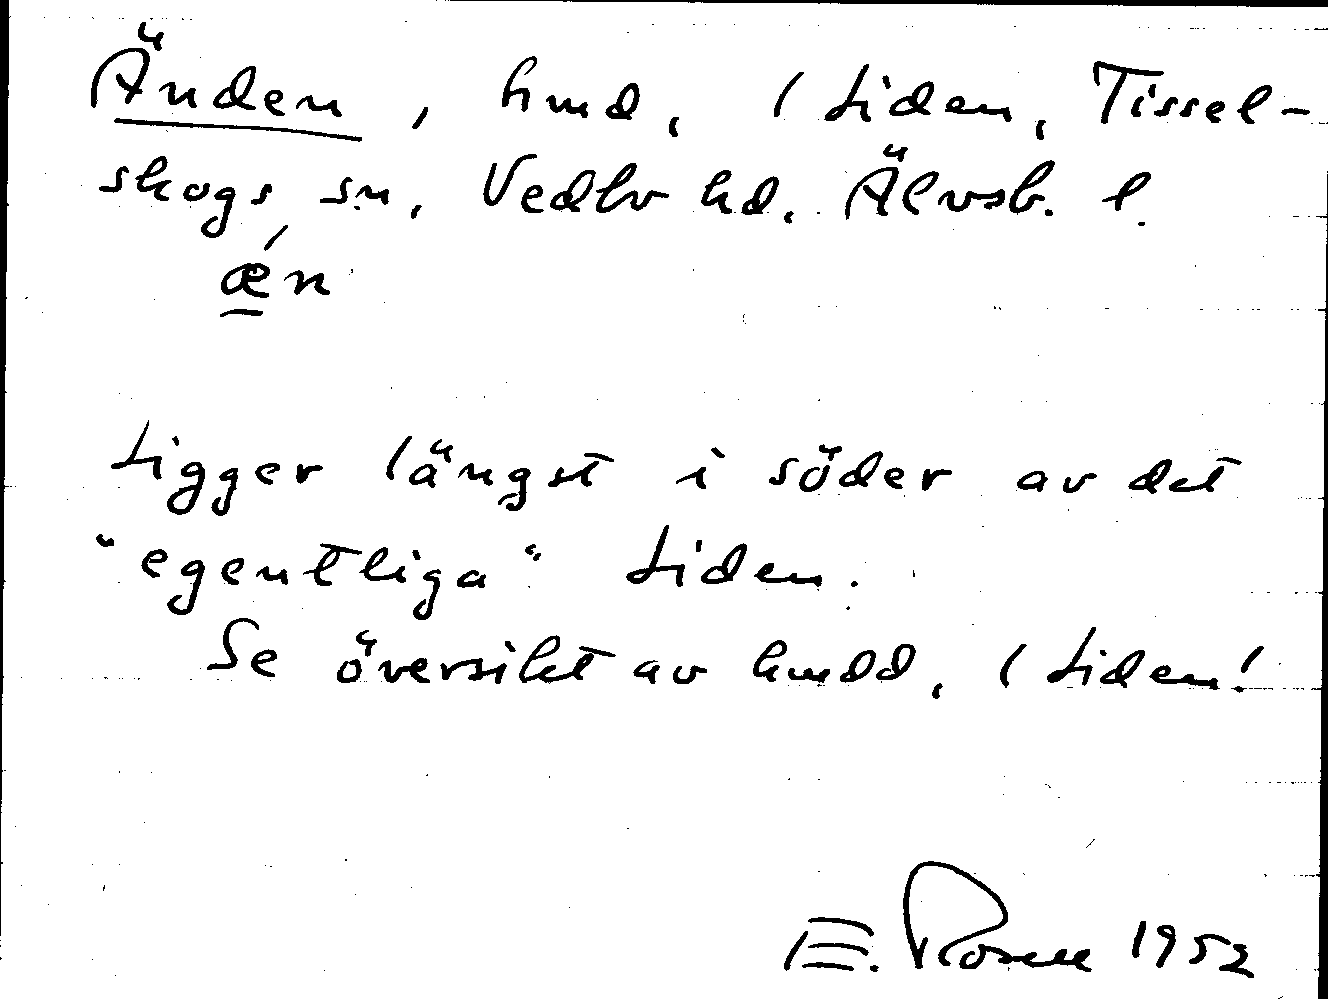 Änden, hmd, 1 Liden, Tissel-
skogs sn, Vedbo hd. Älvsb. l.
ǽn
Ligger längst i söder av det
"egentliga" Liden.
Se översikt av hmdd, 1 Liden!
E. Rosell 1952